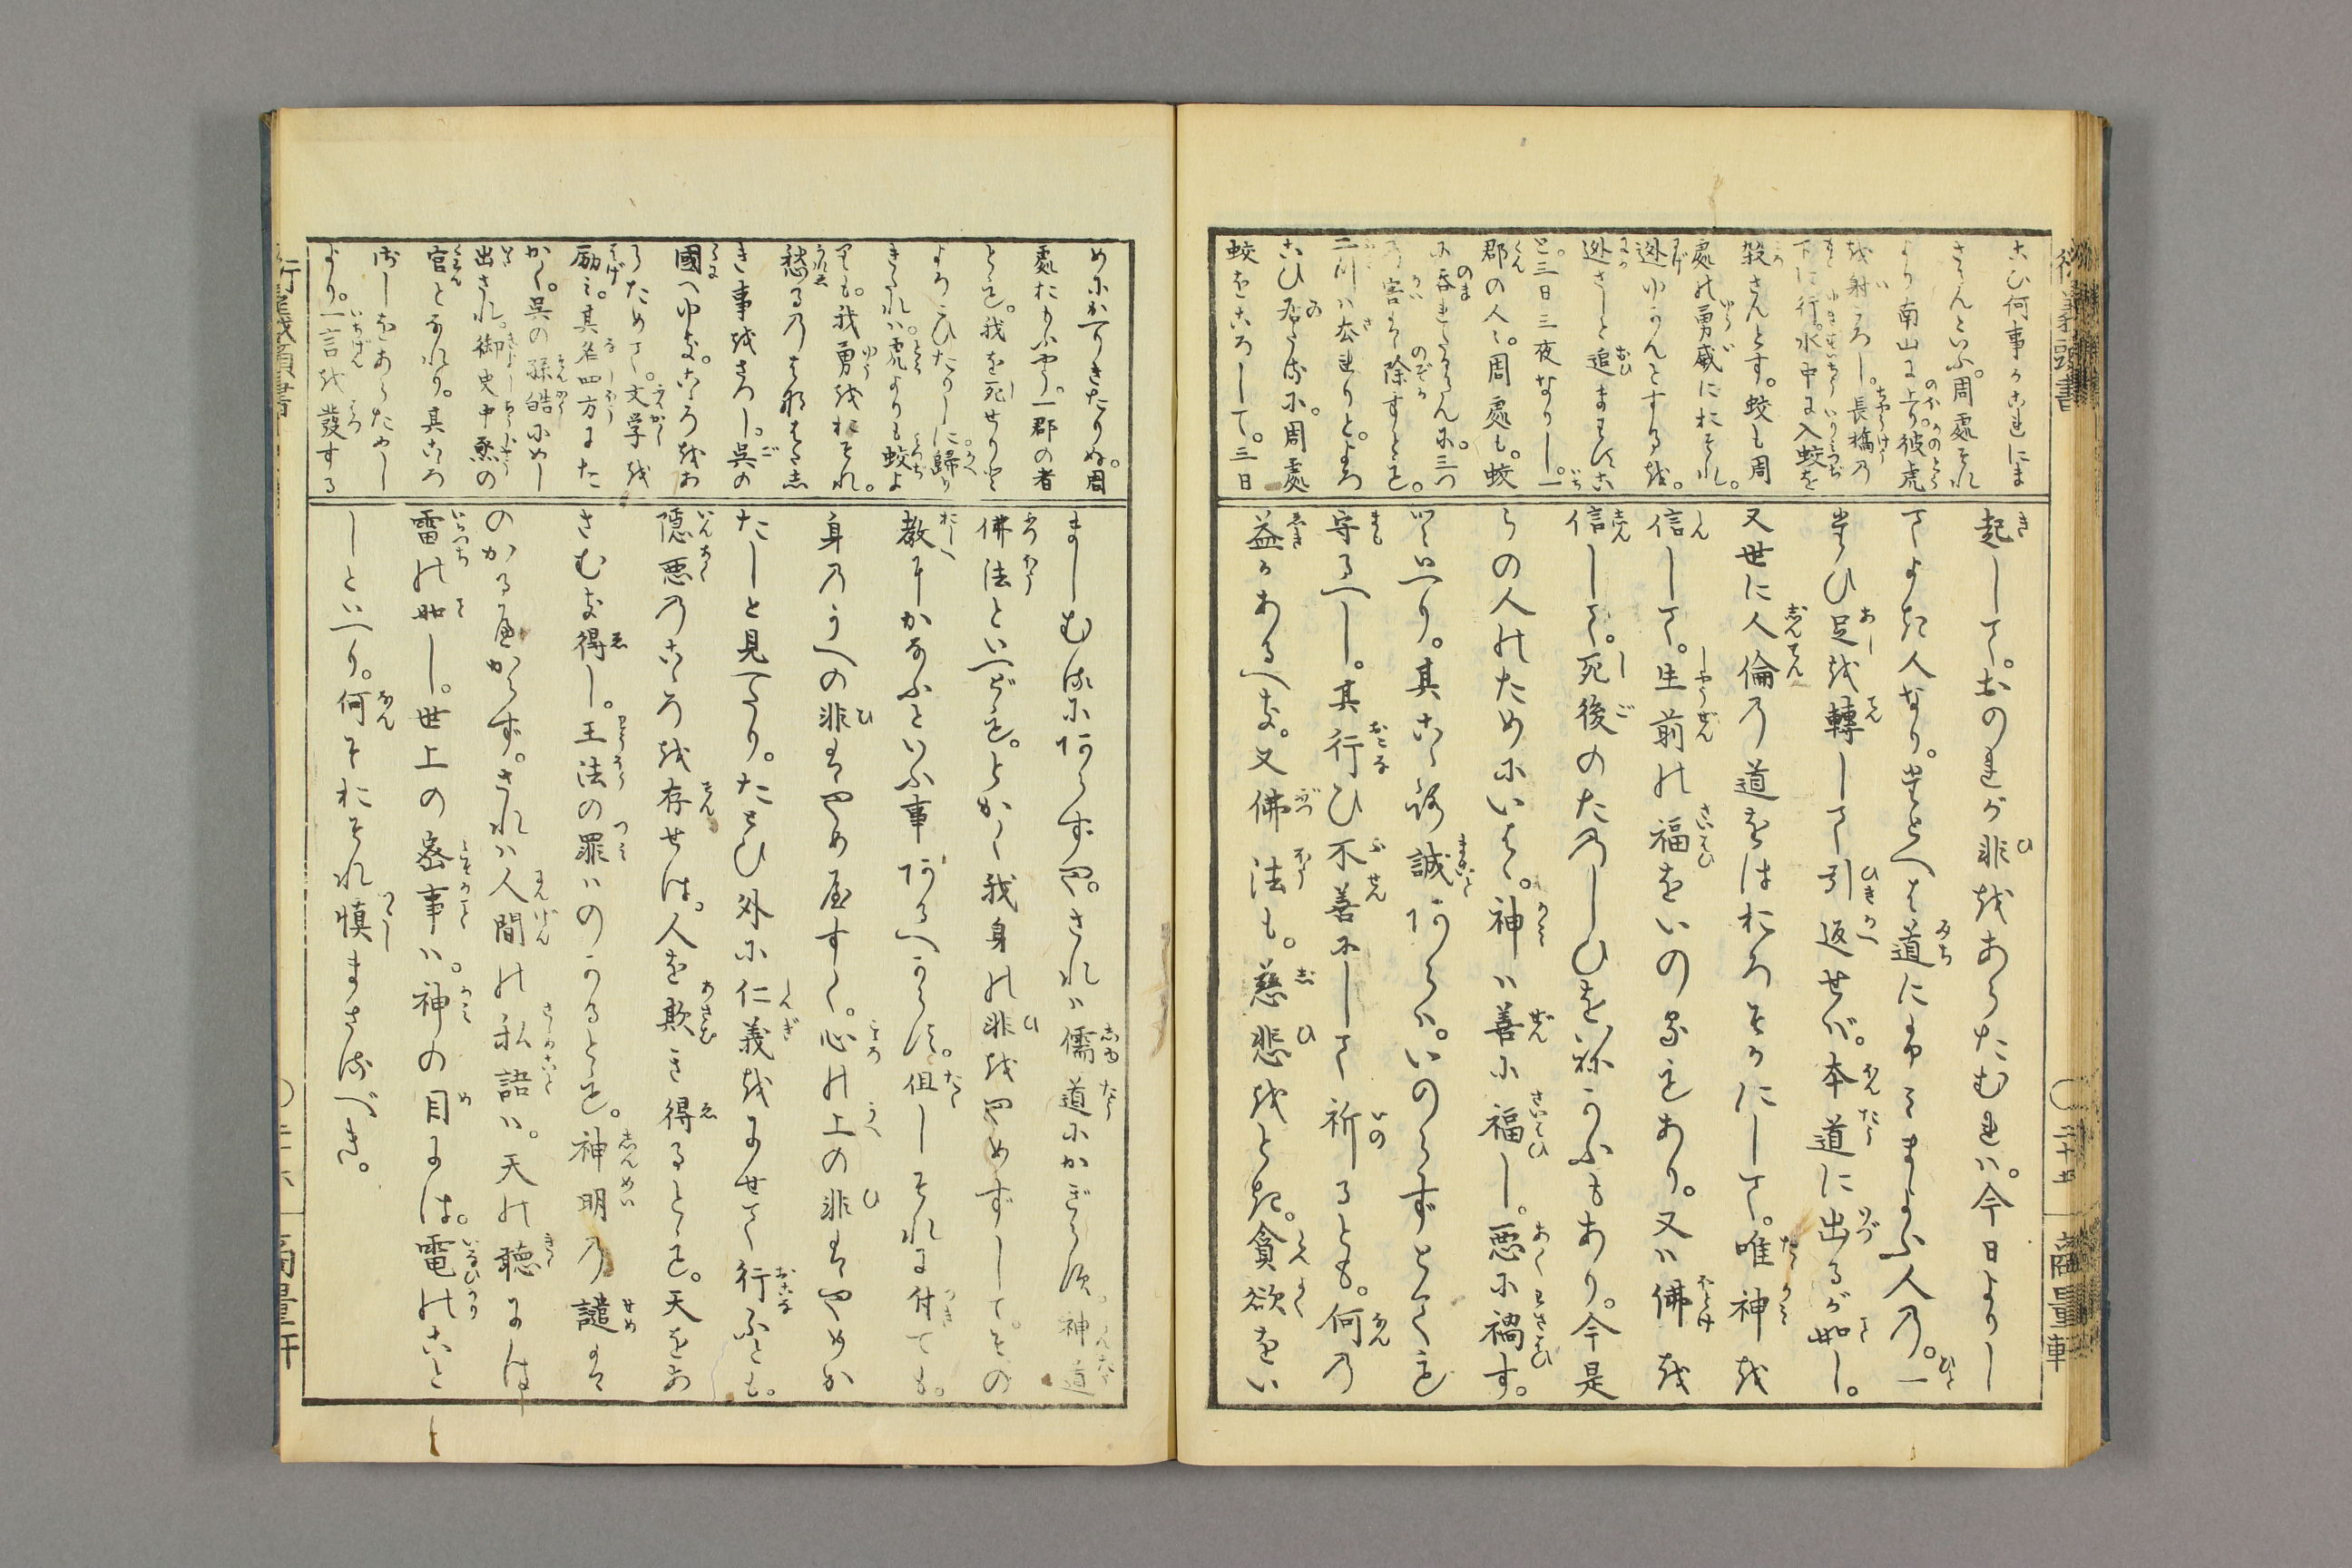 こひ何事かこれにま
さらんといふ。周處それ
より南山に上り。彼虎
を射ころし。長橋の
下に行。水中に入蛟を
殺さんとす。蛟も周
處の勇威におそれ。
逃ゆかんとするを。
逃さじと追まはすこ
と。三日三夜なりし。一
郡の人々。周處も。蛟
に呑れたるらんに。三つ
の害を除すとも。
二つハ去れりと。よろ
こひ居る所に。周處
蛟をころして。三日
起して。おのれが非をあらたむれハ。今日よりし
てよき人なり。たとへは道にふみまよふ人の。一
たひ足を轉して引返せバ。本道に出るが如し。
又世に人倫の道をはおろそかにして。唯神を
信して。生前の福をいのる者もあり。又ハ佛を
信して。死後のたのしひをねかふもあり。今是
らの人のためにいはく。神ハ善に福し。悪に禍す。
といへり。其こゝろ誠あらハ。いのらずとても
守るへし。其行ひ不善にして祈るとも。何の
益かあるへき。又佛法も。慈悲をとき。貪欲をい
衍義頭書
二十五
商量軒
めにかへりきたりぬ。周
處おもふやう。一郡の者
とも。我を死せりとて
よろこひたりしに歸り
きたれハ。虎よりも蛟よ
りも。我勇をおそれ。
愁るのはなはたし
き事をさとし。呉の
國へゆき。こゝろをあ
らためて。文学を
励み。其名四方にた
かく。呉の孫皓にめし
出され。御史中丞の
官となれり。其こゝろ
さしをあらためし
より。一言を發する
ましむるにあらずや。されハ儒道にかぎらす。神道
佛法といへども。とかく我身の非をやめずして。その
教にかなふといふ事あるへからす。但しそれに付ても。
身のうへの非はやめやすく。心の上の非はやめか
たしと見へたり。たとひ外に仁義をよせて行ふとも。
隠悪のこゝろを存せは。人を欺き得るとも。天をあ
さむき得し。王法の罪ハのかるとも。神明の譴は
のかるへからず。されハ人間の私語ハ。天の聴には
雷の如し。世上の密事ハ。神の目には。電のこと
しといへり。何そおそれ慎まさるべき。
衍義頭書
二十六
商量軒